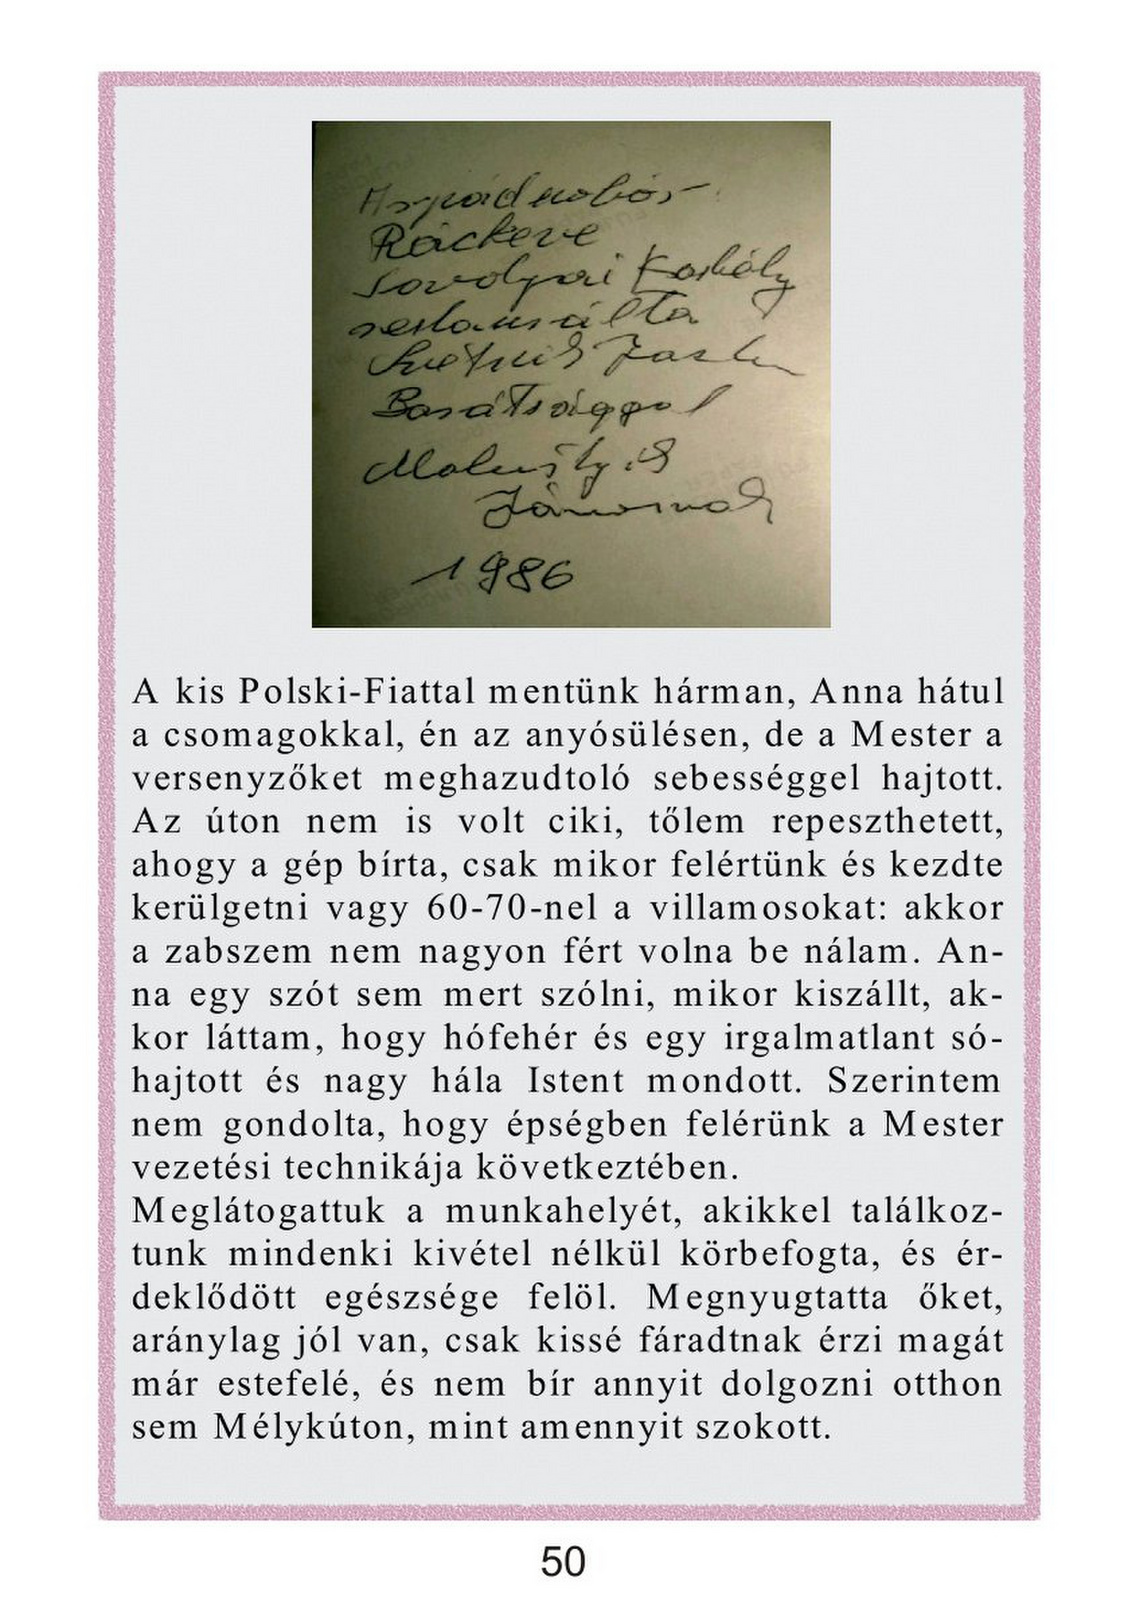 Árpád szobor
Ráckeve
Savolyai Károly
restaurálta
Barátsággal
Jánosnak
1986
A kis Polski-Fiattal mentünk hárman, Anna hátul
a csomagokkal, én az anyósülésen, de a Mester a
versenyzőket meghazudtoló sebességgel hajtott.
Az úton nem is volt ciki, tőlem repeszthetett,
ahogy a gép bírta, csak mikor felértünk és kezdte
kerülgetni vagy 60-70-nel a villamosokat: akkor
a zabszem nem nagyon fért volna be nálam. An-
na egy szót sem mert szólni, mikor kiszállt, ak-
kor láttam, hogy hófehér és egy irgalmatlant só-
hajtott és nagy hála Istent mondott. Szerintem
nem gondolta, hogy épségben felérünk a Mester
vezetési technikája következtében.
Meglátogattuk a munkahelyét, akikkel találkoz-
tunk mindenki kivétel nélkül körbefogta, és ér-
deklődött egészsége felöl. Megnyugtatta őket,
aránylag jól van, csak kissé fáradtnak érzi magát
már estefelé, és nem bír annyit dolgozni otthon
sem Mélykúton, mint amennyit szokott.
50